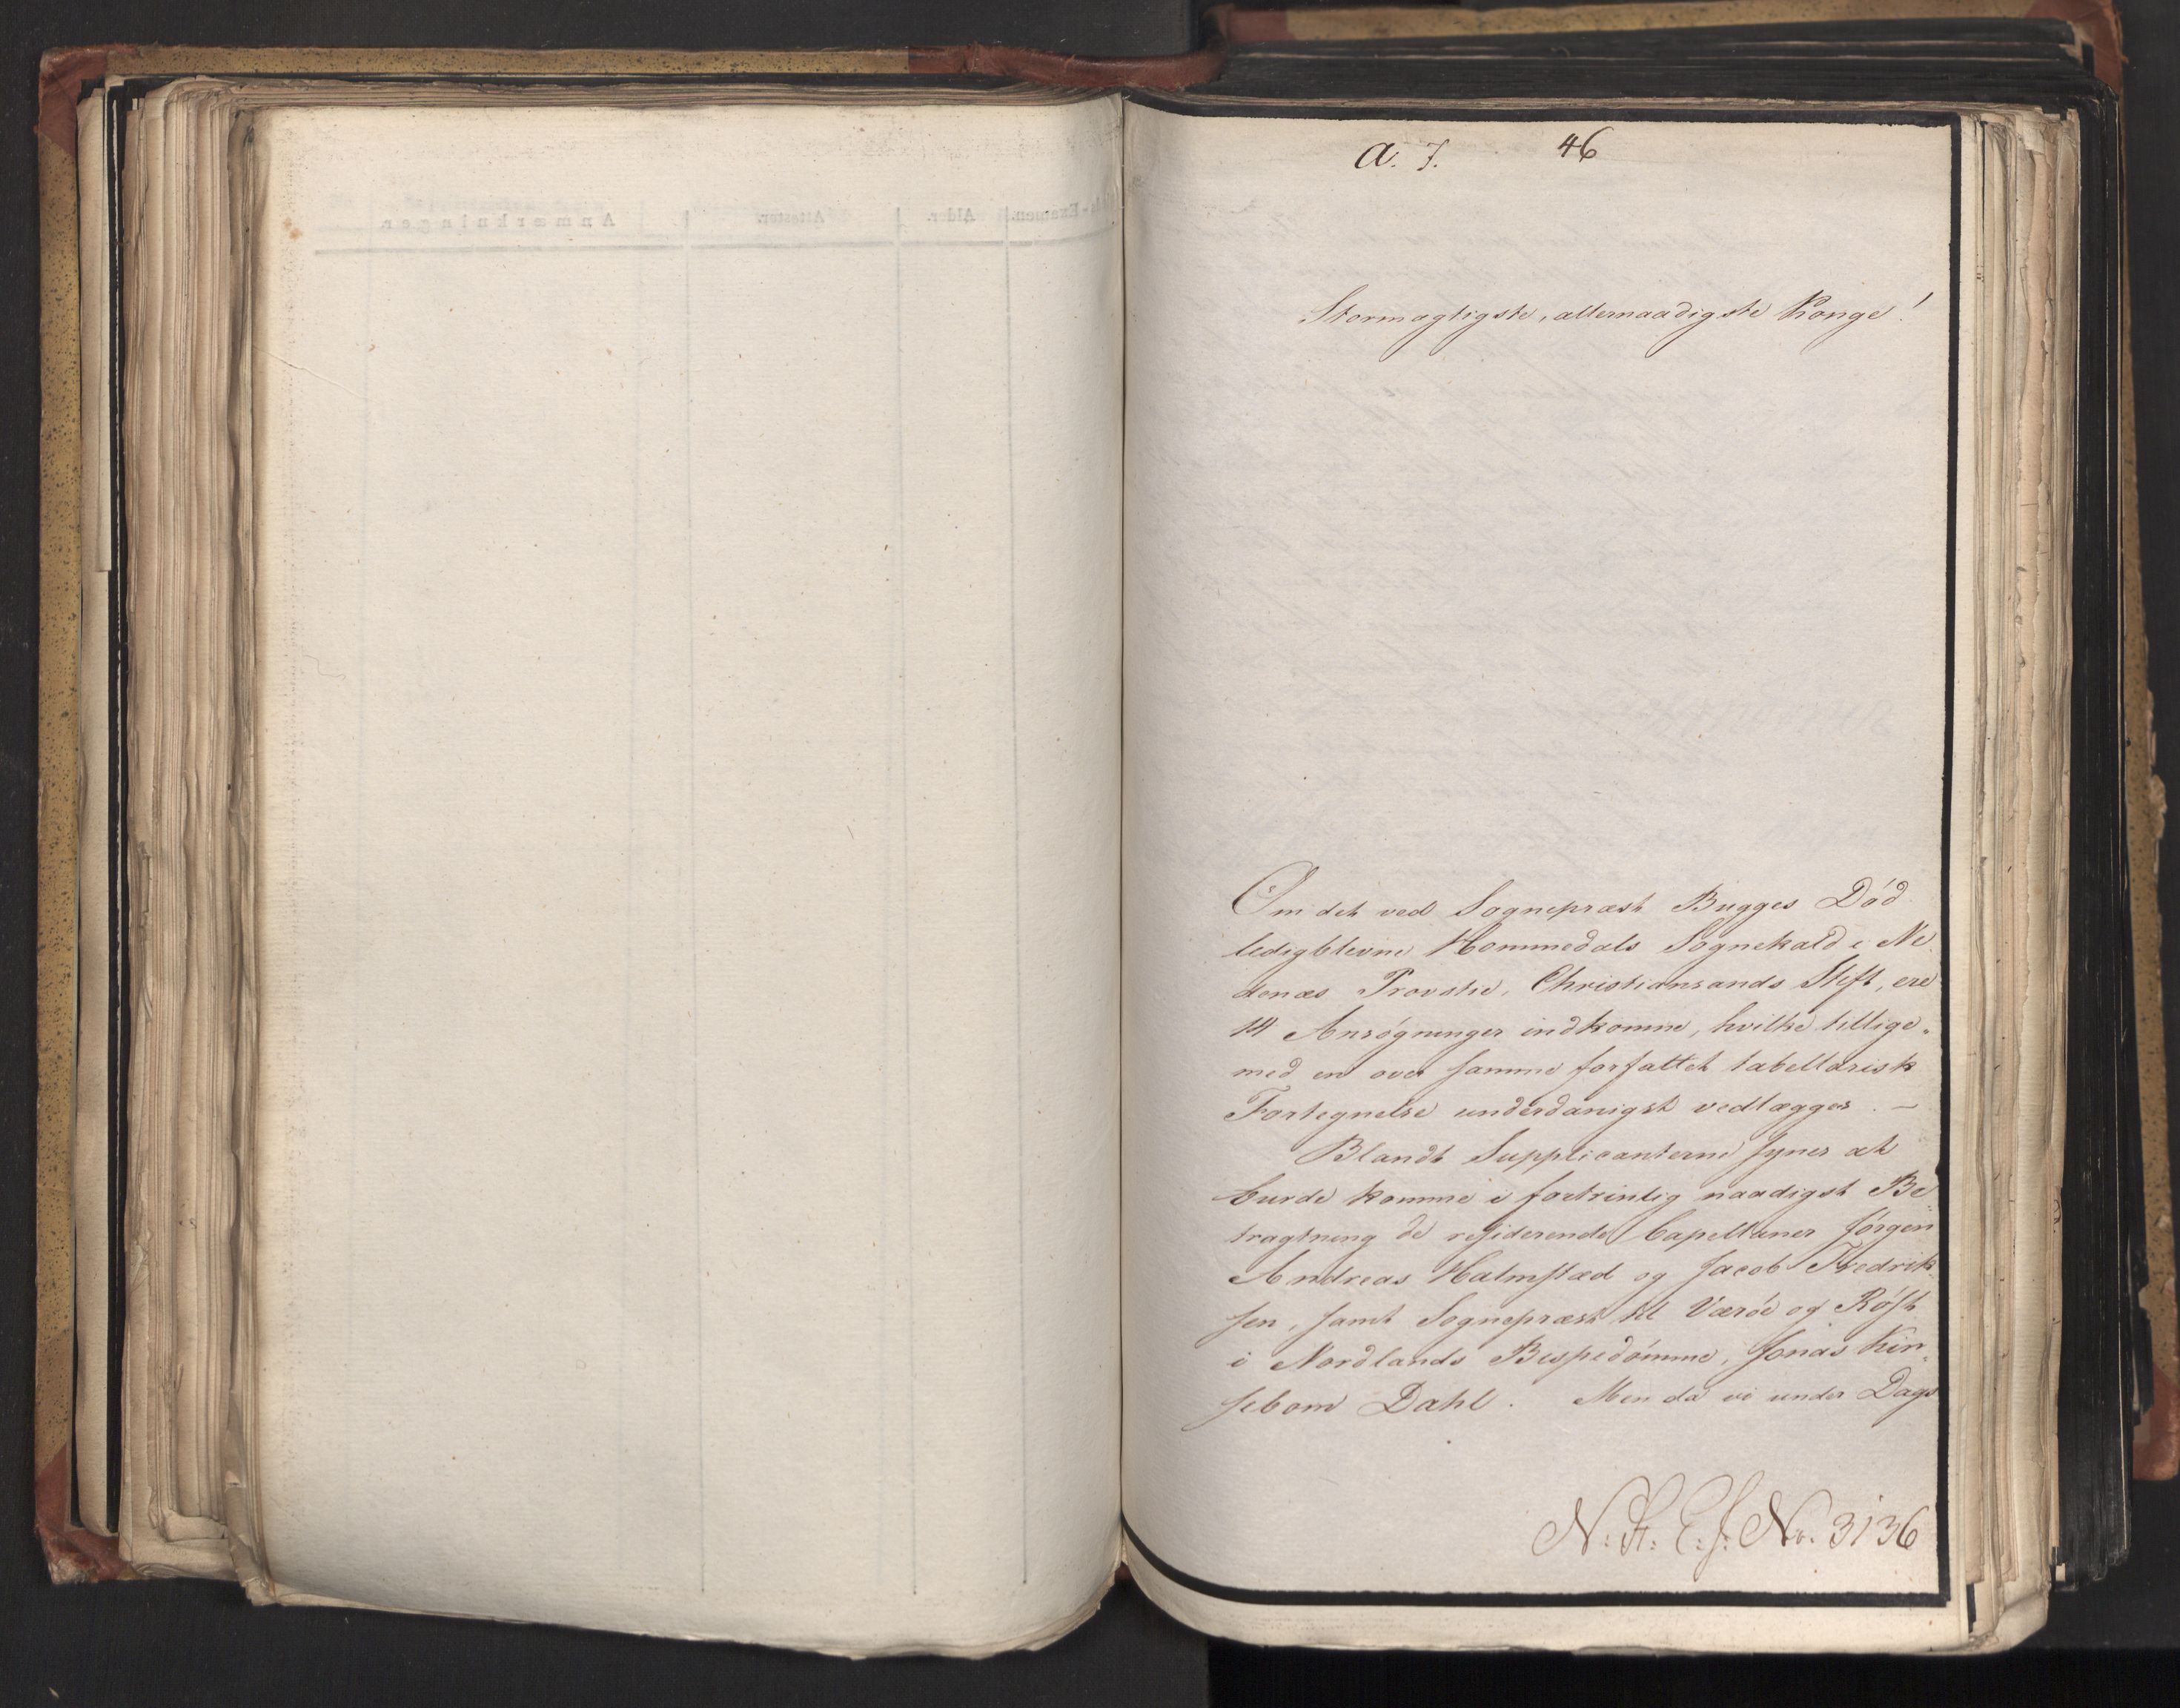 a. 7. 46
Stormægtigste, allernaadigste Konge!
Om det ved Sognepræst Bugges Død
ledigblevne Hommedals Sognekald i Ne-
denæs Provstie, Christiansands Stift, ere
14 Ansøgninger indkomne, hvilke tillige-
med en over samme forfattet tabellarisk
Fortegnelse underdanigst vedlægges. —
Blandt Supplicanterne synes at
burde komme i fortrinlig naadigst Be-
tragtning de residerende Capellaner Jørgen
Andreas Halmstad og Jacob Fredrik-
sen, samt Sognepræst til Værøe og Røst
i Nordlands Bispedømme, Jonas Kin-
sebom Dahl. Men da vi under Dags
N: R: C: J: No. 3136
Examen. Alder. Attester. Anmærkninger.